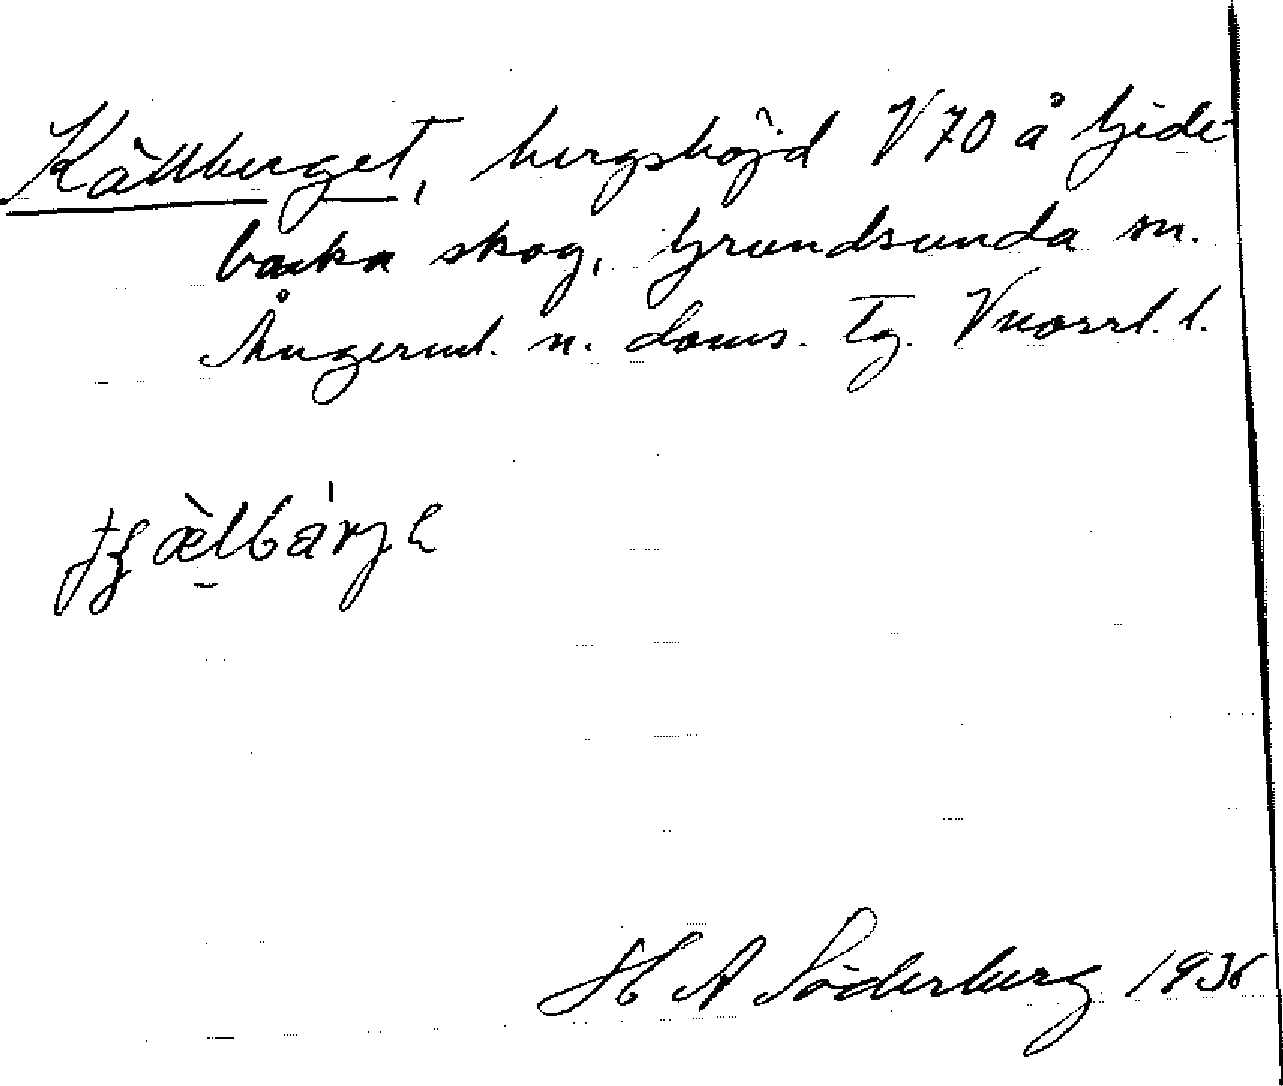 Källberget, bergshöjd V70 å Gide-
backa skog, Grundsunda sn.
Ångerml. n. doms. tg. Vnorrl. l.
H A Söderberg 1936